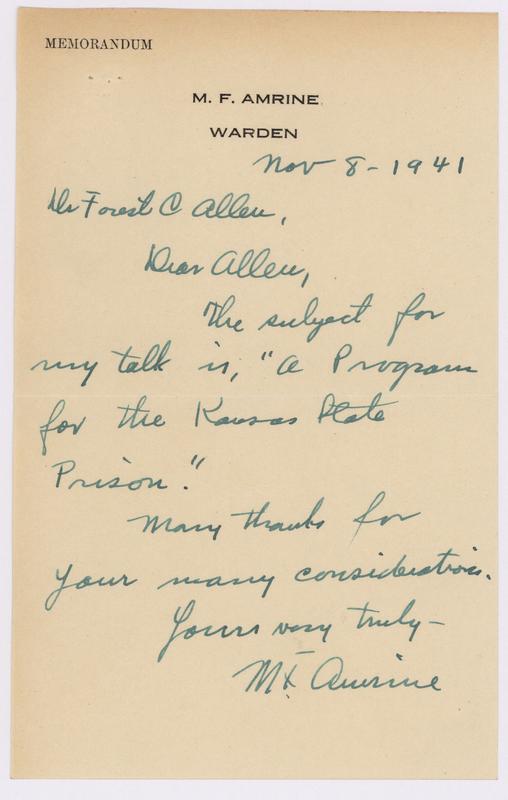 MEMORANDUM
M. F. AMRINE
WARDEN
Nov 8 - 1941
Dr Forest C Allen,
Dear Allen,
The subject for
my talk is, "A Program
for the Kansas State
Prison."
Many thanks for
your many considerations.
Yours very truly -
M F Amrine